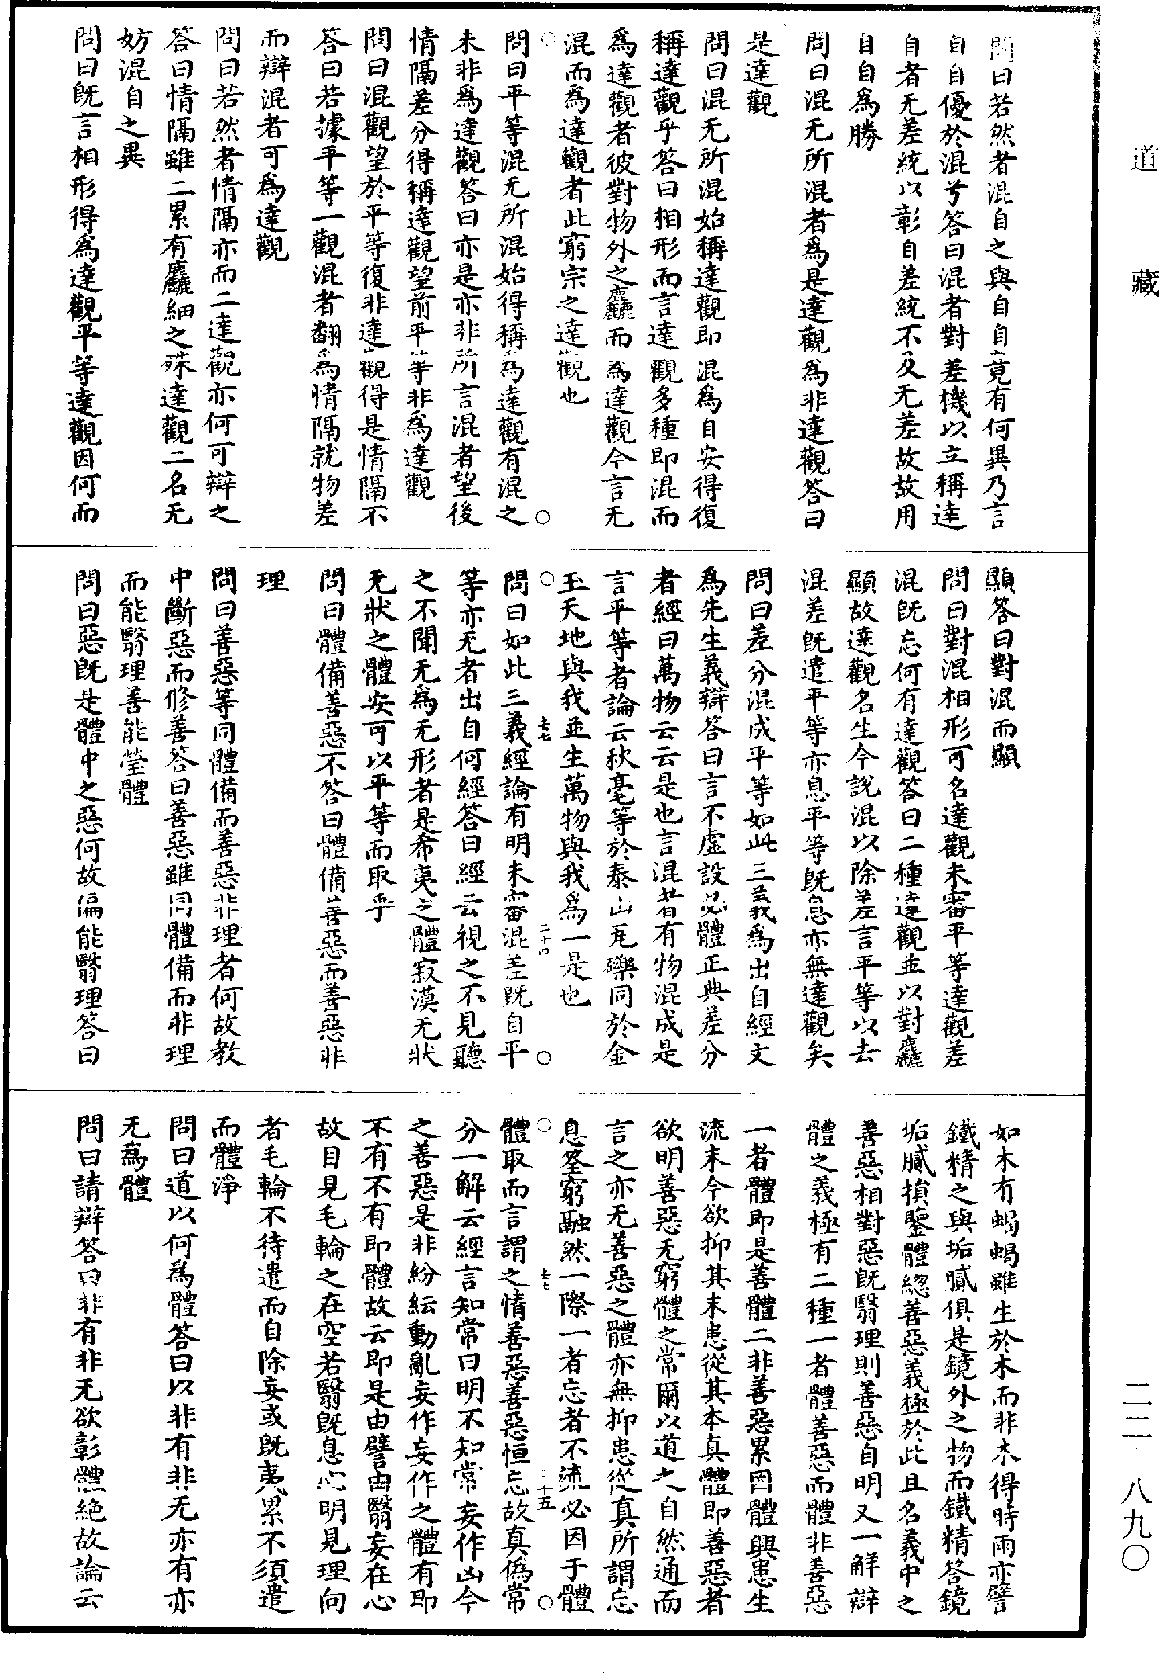 道藏
二二·八九〇
問曰若然者混自之與自自竟有何異乃言
自自優於混兮答曰混者對差機以立稱達
自者无差統以彰自差統不及无差故故用
自自爲勝
問曰混无所混者爲是達觀爲非達觀答曰
是達觀
問曰混无所混始稱達觀即混爲自安得復
稱達觀乎答曰相形而言達觀多種即混而
爲達觀者彼對物外之麤而爲達觀今言无
混而爲達觀者此窮宗之達觀也
問曰平等混无所混始得稱爲達觀有混之
未非爲達觀答曰亦是亦非所言混者望後
情隔差分得稱達觀望前平等非爲達觀
問曰混觀望於平等復非達觀得是情隔不
答曰若據平等一觀混者翻爲情隔就物差
而辯混者可爲達觀
問曰若然者情隔亦而二達觀亦何可辯之
答曰情隔雖二累有麤細之殊達觀二名无
妨混自之異
問曰旣言相形得爲達觀平等達觀因何而
顯答曰對混而顯
問曰對混相形可名達觀未審平等達觀差
混旣忘何有達觀答曰二種達觀並以對麤
顯故達觀名生今說混以除差言平等以去
混差旣遣平等亦息平等旣息亦無達觀矣
問曰差分混成平等如此三義爲出自經文
爲先生義辯答曰言不虛設必體正典差分
者經曰萬物云云是也言混者有物混成是
言平等者論云秋毫等於泰山瓦礫同於金
玉天地與我並生萬物與我爲一是也
問曰如此三義經論有明未審混差旣自平
等亦无者出自何經答曰經云視之不見聽
之不聞无爲无形者是希夷之體寂漠无狀
无狀之體安可以平等而取乎
問曰體備善惡不答曰體備善惡而善惡非
理
問曰善惡等同體備而善惡非理者何故教
中斷惡而修善答曰善惡雖同體備而非理
而能翳理善能瑩體
問曰惡旣是體中之惡何故偏能翳理答曰
如木有蝎蝎雖生於木而非木得時雨亦譬
鐵精之與垢膩俱是鏡外之物而鐵精答鏡
垢膩損鑒體緫善惡義極於此且名義中之
善惡相對惡旣翳理則善惡自明又一解辯
體之義極有二種一者體善惡而體非善惡
一者體即是善體二非善惡累因體興患生
流末今欲抑其末患從其本真體即善惡者
欲明善惡无窮體之常爾以道之自然通而
言之亦无善惡之體亦無抑患從真所謂忘
息筌窮融然一際一者忘者不流必因于體
體取而言謂之情善惡善惡恒忘故真僞常
分一解云經言知常曰明不知常妄作凶今
之善惡是非紛紜動亂妄作妄作之體有即
不有不有即體故云即是由譬由翳妄在心
故目見毛輪之在空若翳旣息心明見理向
者毛輪不待遣而自除妄或旣夷累不須遣
而體淨
問曰道以何爲體答曰以非有非无亦有亦
无爲體
問曰請辯答曰非有非无欲彰體絶故論云